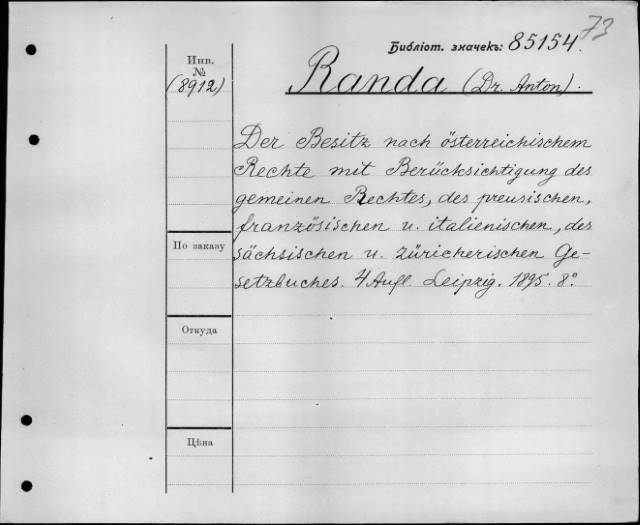 73
Библіот. значекъ: 85154.
Инв.
№
(8912)
Randa (Dr. Anton).
Der Besitz nach österreichischem
Rechte mit Berücksichtigung des
gemeinen Rechtes, des preusischen,
französischen u. italienischen, des
sächsischen u. züricherischen Ge-
setzbuches. 4 Aufl. Leipzig. 1895. 8°.
По заказу
Откуда
Цѣна